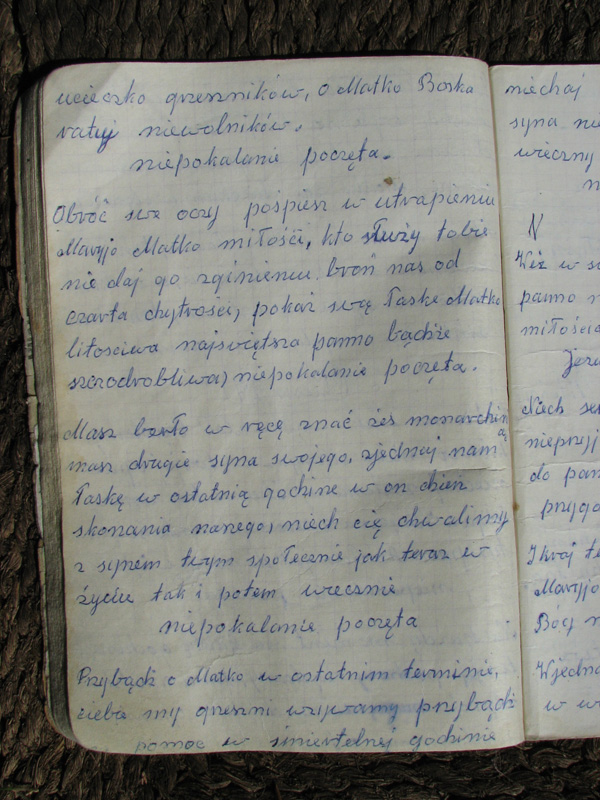 ucieczko grzeszników, o Matko Boska
ratuj niewolników.
niepokalanie poczęta.
Obróć swe oczy pośpiesz w utrapieniu
Maryjo Matko miłości, kto służy tobie
nie daj go zginieniu. broń nas od
czarta chytrości, pokaż swą łaskę Matko
litościwa najświętsza panno bądźże
szczodrobliwa, niepokalanie poczęta.
Masz berło w ręcę znać żeś monarchinią
masz drugie syna swojego, zjednaj nam
łaskę w ostatnią godzine w on dzień
skonania naszego, niech cię chwalimy
z synem twym społecznie jak teraz w
życiu tak i potem wiecznie
niepokalanie poczęta
Przybądź o Matko w ostatnim terminie,
ciebie my grzeszni wzywamy przybądź
pomoc w śmiertelnej godzinie
niechaj
syna
wieczny
N
Weź w
panno
miłości
Niech
nieprzyj
do pan
przyga
I kraj
Maryjo
Bócy
Wjedna
w